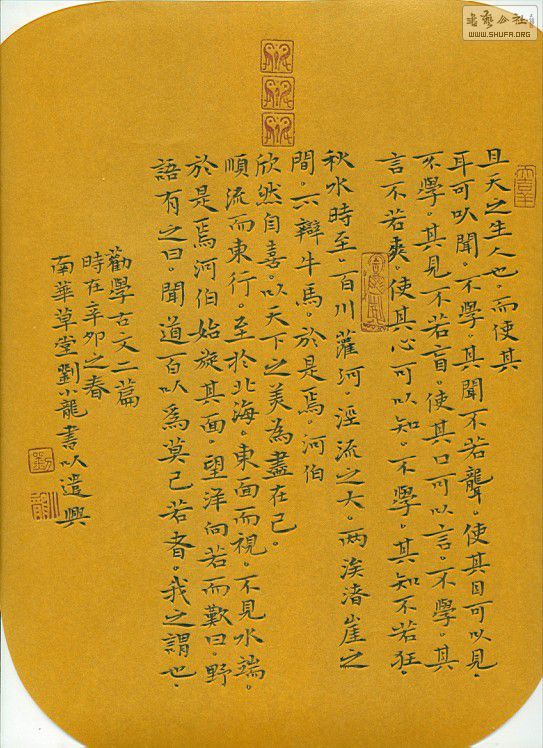 且天之生人也。而使其
耳可以聞。不學。其聞不若聾。使其目可以見。
不學。其見不若盲。使其口可以言。不學。其
言不若爽。使其心可以知。不學。其知不若狂。
秋水時至。百川灌河。涇流之大。两涘渚崖之
間。不辯牛馬。於是焉。河伯
欣然自喜。以天下之美為盡在己。
順流而東行。至於北海。東面而視。不見水端。
於是焉河伯始旋其面。望洋向若而歎曰。野
語有之曰。聞道百以為莫己若者。我之謂也。
勸學古文二篇
時在辛卯之春
南華草堂劉小龍書以遣興
書藝公社
WWW.SHUFA.ORG